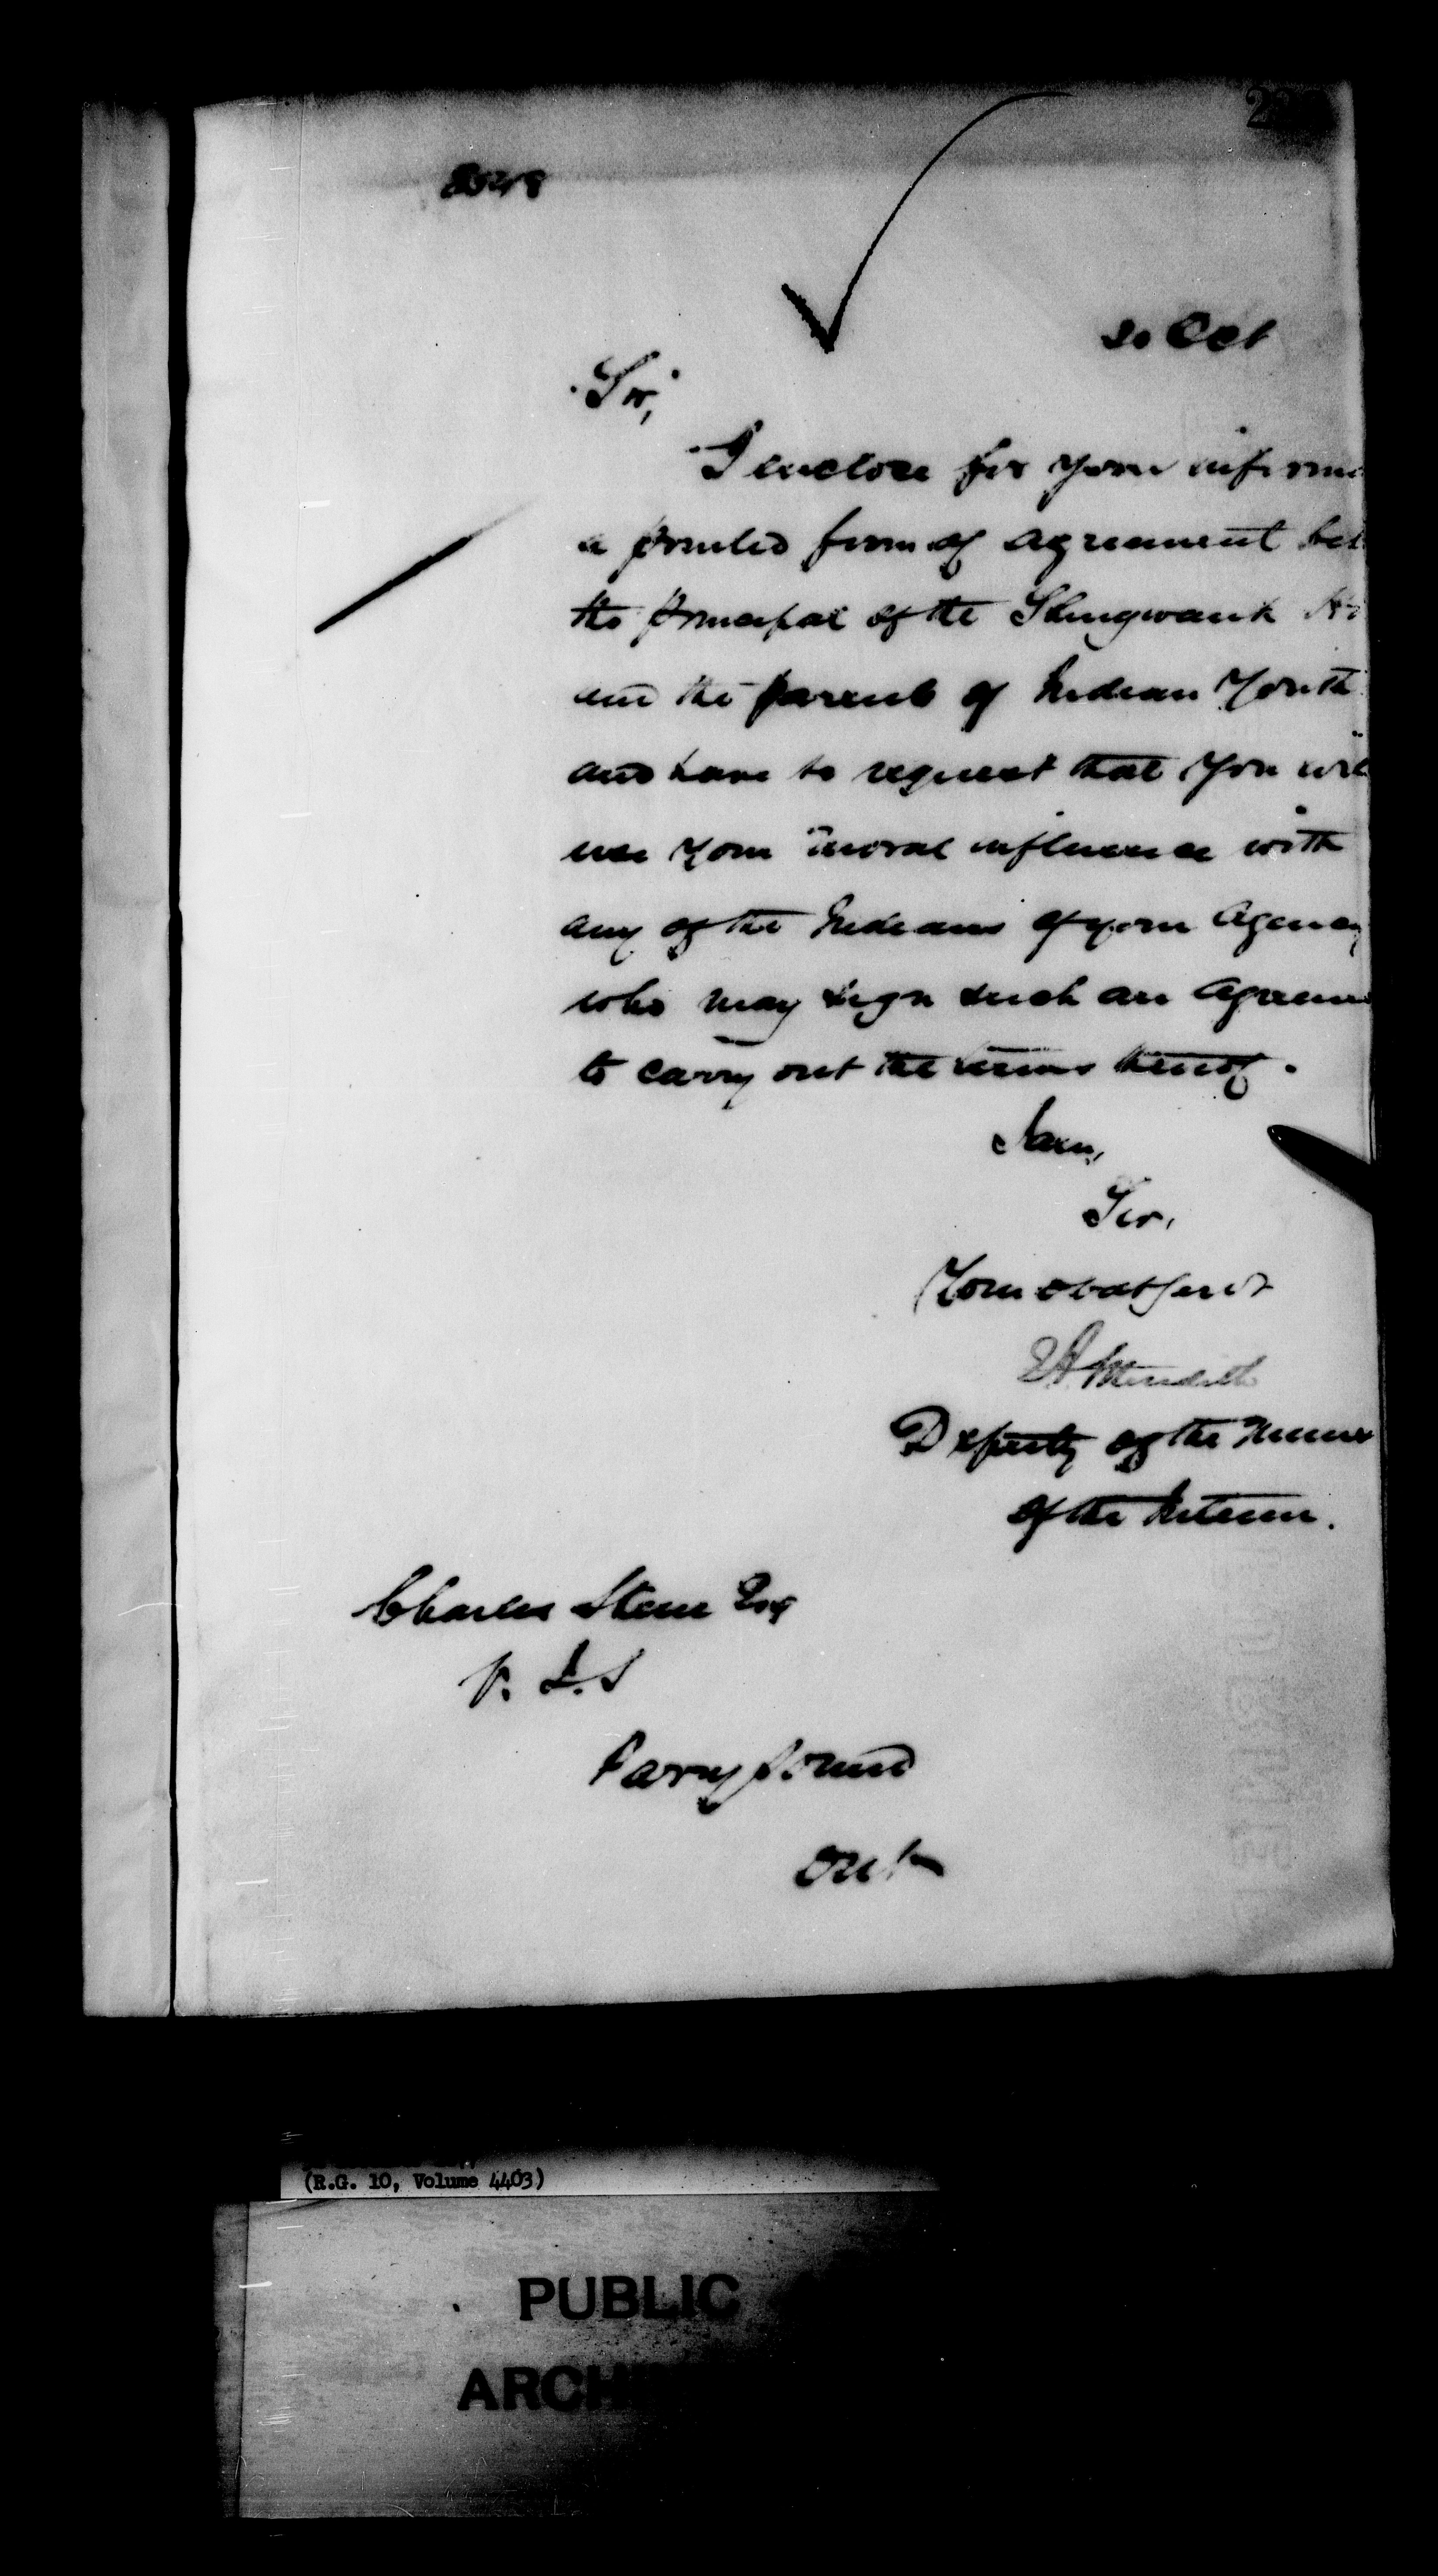 20 Oct
Sir,
I enclose for your inform
a printed form of agreement bet
the principal of the Shingwauk
and the parents of Indian Youth
and have to request that you wil
use your moral influence with
any of the Indians of your Agency
who may sign such an Agreem
to carry out the terms thereof.
I am,
Sir,
Your obdt servt
Meredith
Deputy of the Minister
of the Interior.
Charles Skene Esq
V. I. S
Parry Sound
Ont
(R.G. 10, Volume 4403)
PUBLIC
ARCH